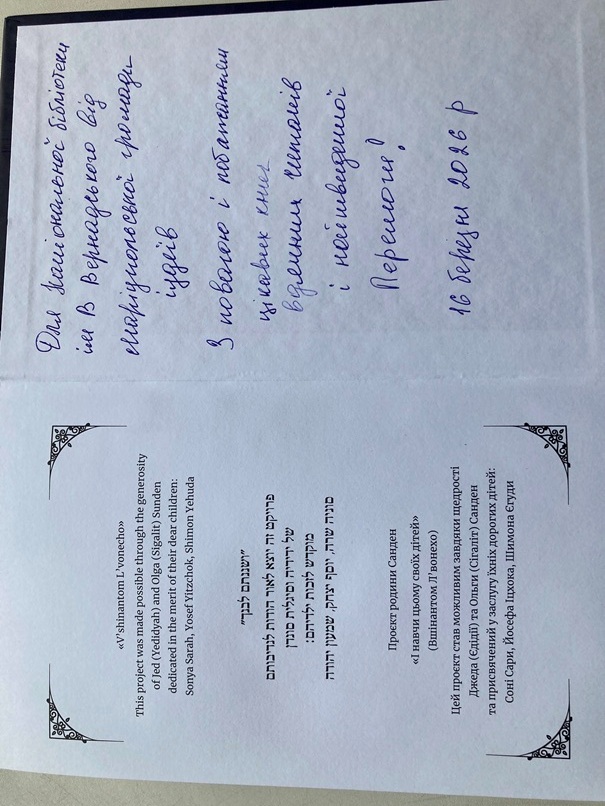 Для Національної бібліотеки
ім В Вернадського від
маріупольської громади
іудеїв
З повагою і побажанням
цікавих книг
вдячних читачів
і найшвидшої
Перемоги!
16 березня 2026 р
«V'shinantom L'vonecho»
This project was made possible through the generosity
of Jed (Yedidyah) and Olga (Sigalit) Sunden
dedicated in the merit of their dear children:
Sonya Sarah, Yosef Yitzchok, Shimon Yehuda
"ושננתם לבנך"
פרויקט זה יוצא לאור הודות לנדיבותם
של ידידיה וסיגלית סונדן
מוקדש לזכות ילדיהם:
סוניה שרה, יוסף יצחק, שמעון יהודה
Проєкт родини Санден
«І навчи цьому своїх дітей»
(Вшінантом Л' вонехо)
Цей проєкт став можливим завдяки щедрості
Джеда (Єдідії) та Ольги (Сігаліт) Санден
та присвячений у заслугу їхніх дорогих дітей:
Соні Сари, Йосефа Іцхока, Шимона Єгуди